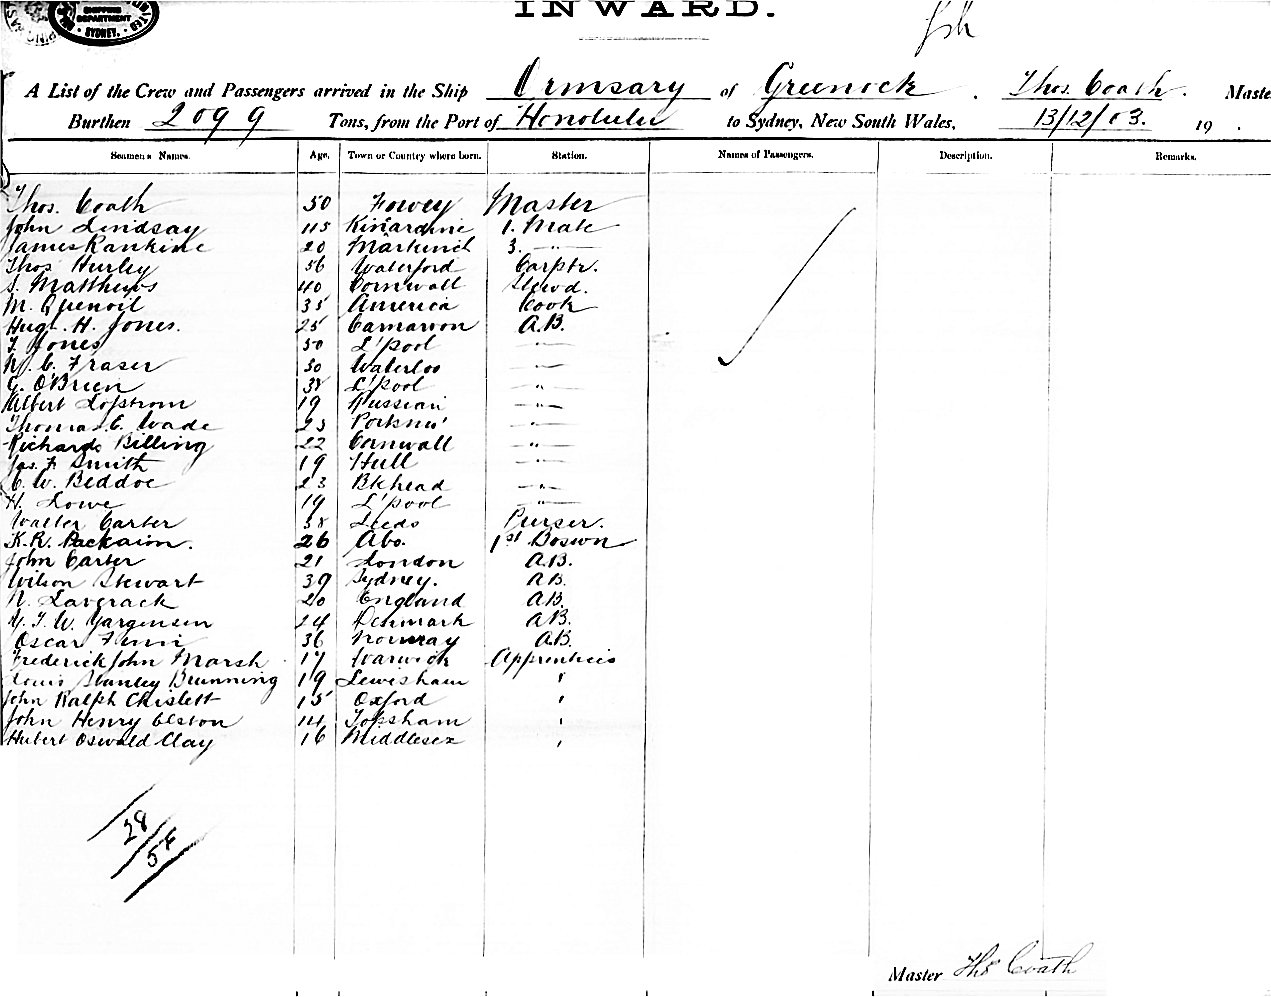 SHIPPING
DEPARTMENT
SYDNEY.
INWARD.
A List of the Crew and Passengers arrived in the Ship Ormsary of Greenock. Thos. Coath. Maste
Burthen 2099 Tons, from the Port of Honolulu to Sydney, New South Wales, 13/12/03. 19 .
Seamen's Names. Age. Town or Country where born. Station. Names of Passengers. Description. Remarks.
Thos. Coath 50 Fowey Master
John Lindsay 45 Kinardine 1. Mate
James Rankine 20 Markinch 3. —"—
Thos Hurley 56 Waterford Carptr.
S. Matthews 40 Cornwall Stewd.
M. 35 America Cook
Hugh. H. Jones. 25 Carnarvon A.B.
T. Jones 50 L'pool —"—
C. Fraser 30 Waterloo —"—
G. O'Brien 38 L'pool —"—
Albert Lofstrom 19 Russian —"—
Thomas E. Wade 23 —"—
Richards Billing 22 Cornwall —"—
Jas. F. Smith 19 Hull —"—
C. W. Beddoe 23 Bkhead —"—
H. Lowe 19 L'pool —"—
Walter Carter 38 Leeds Purser.
K.R. 26 Abo. 1st Boswn
John Carter 21 London A.B.
Wilson Stewart 39 Sydney. A.B.
N. Laverack 20 England A.B.
W. Yargensen 24 Denmark A.B.
Oscar 36 Norway A.B.
Frederick John Marsh 17 Warwick Apprentices
Louis Stanley Brunning 19 Lewisham "
John Ralph Chislett 15 Oxford "
John Henry Elston 14 Topsham "
Hubert Oswald Clay 16 Middlesex "
28
Master Ths Coath